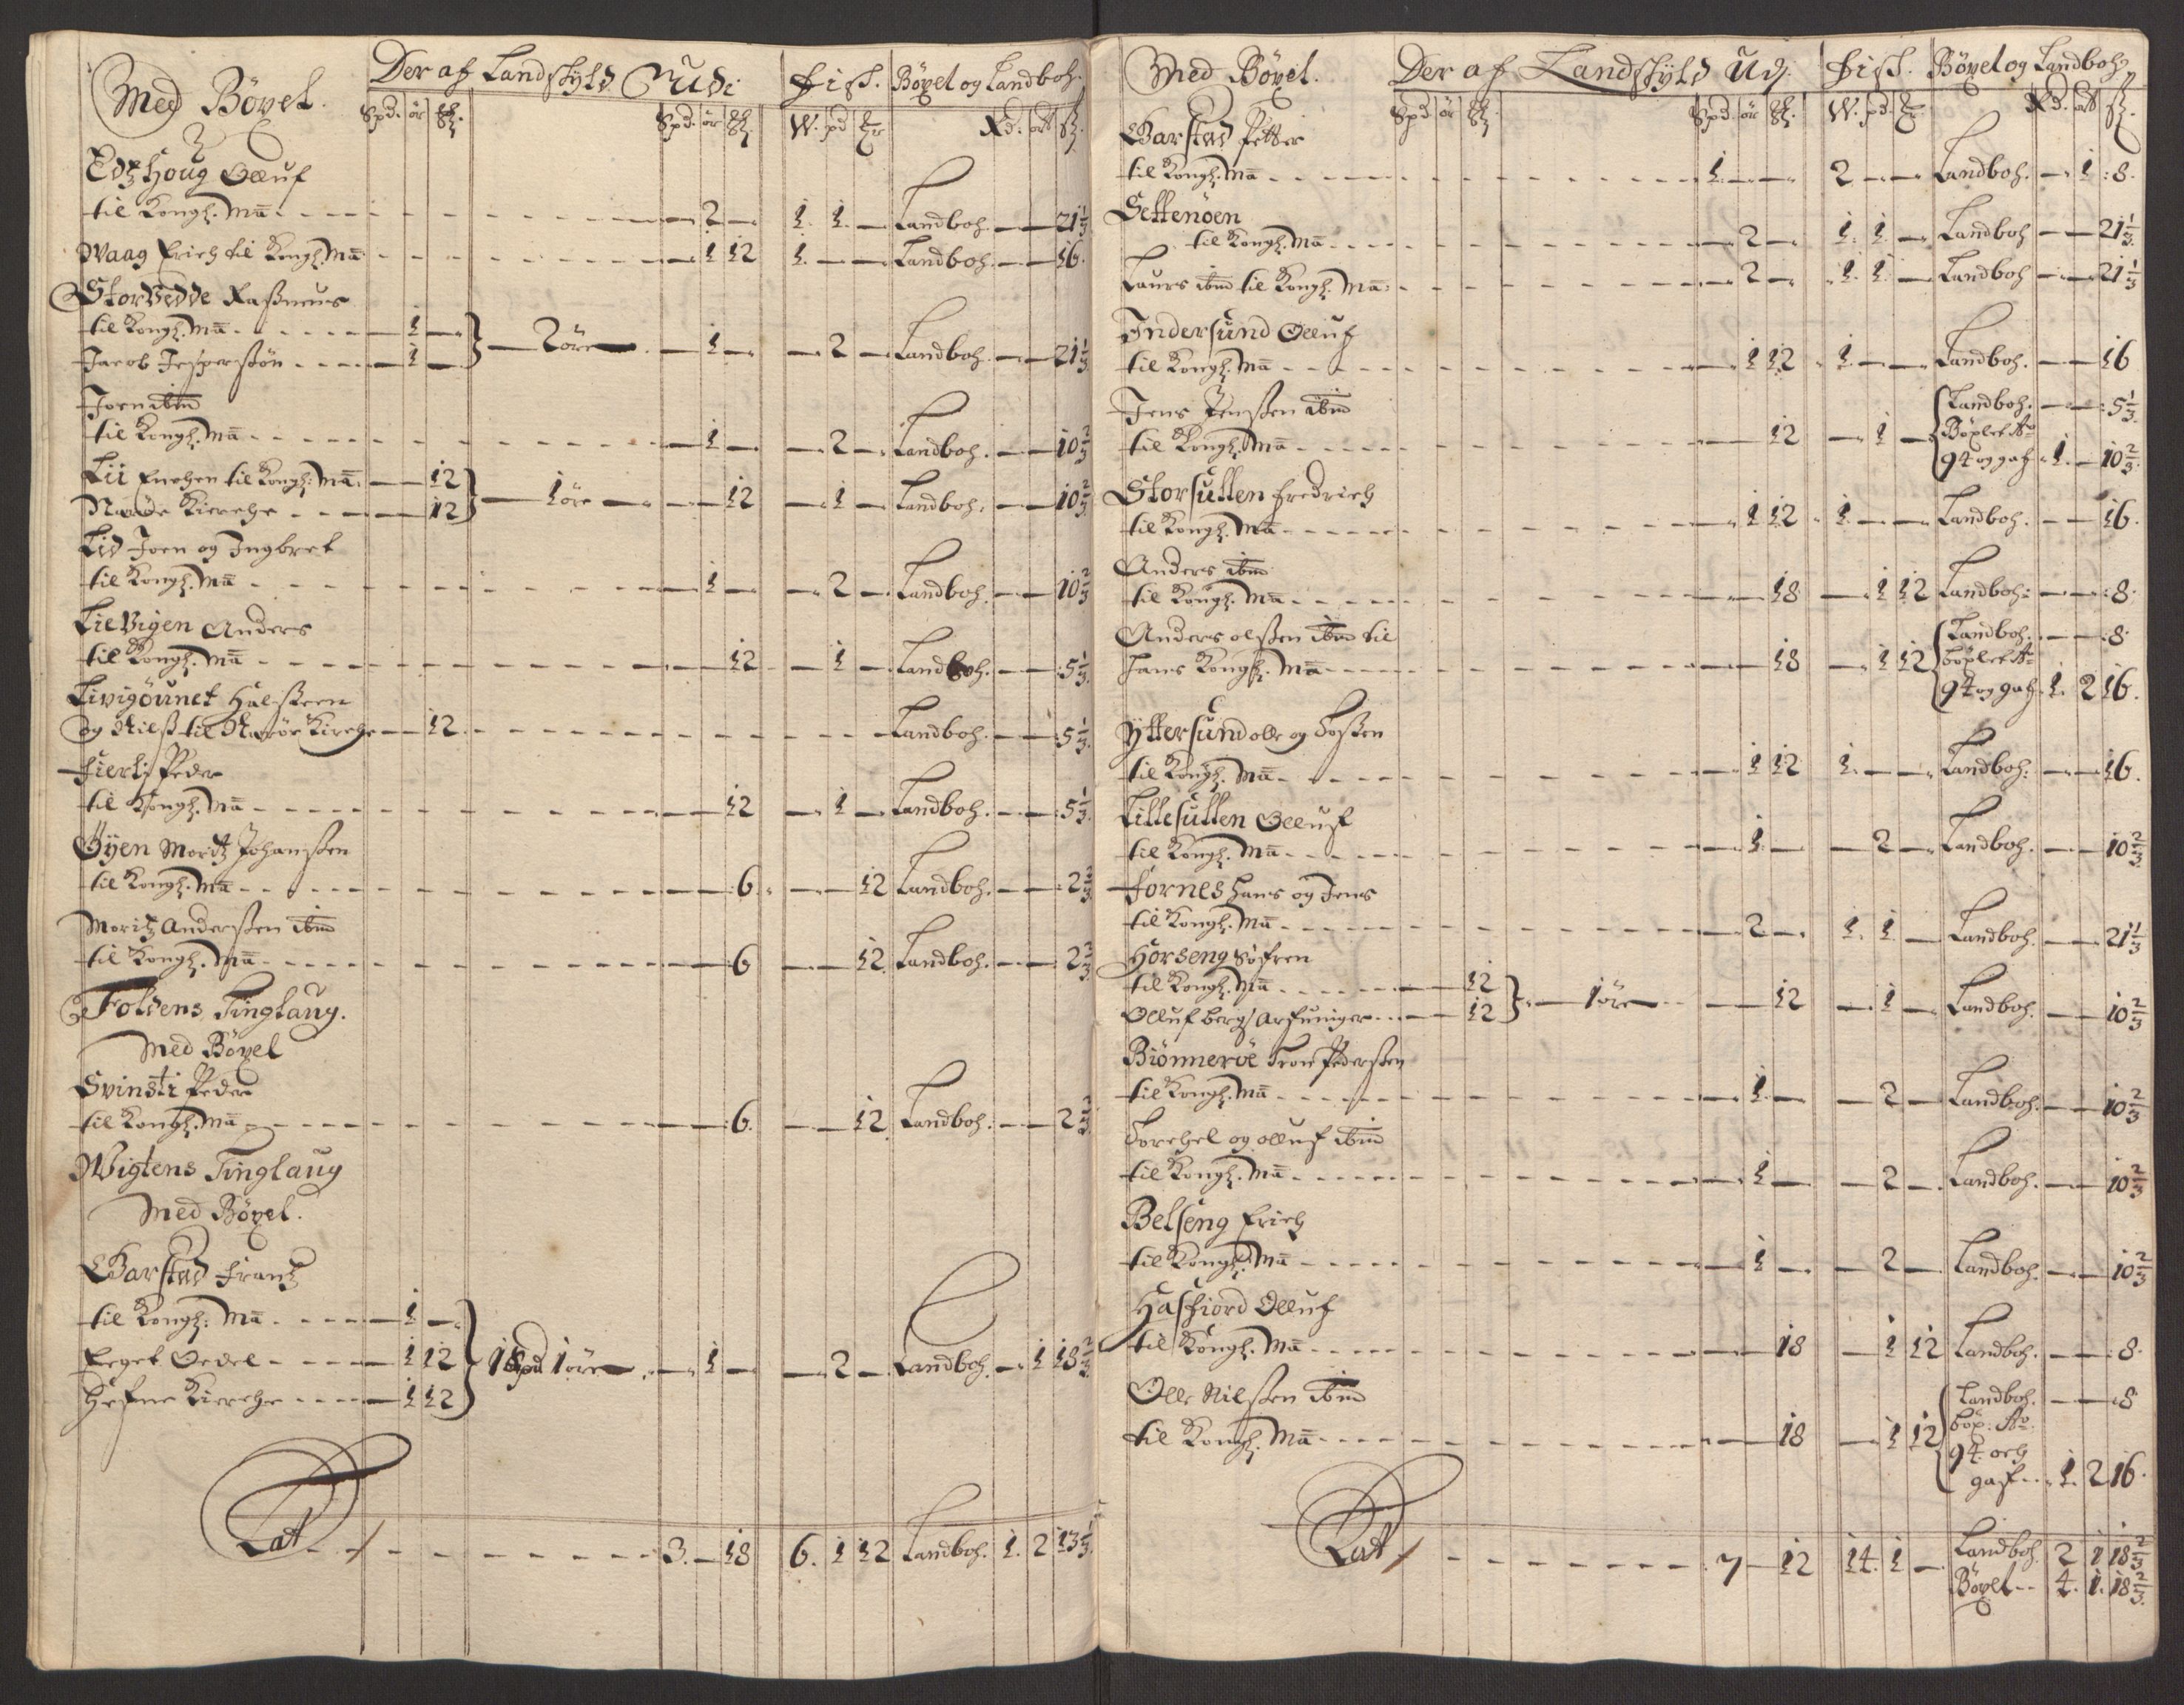 Med Böxel. Der af Landskyld Udi fisk. Böxel og Landboh.
Spd. ör Spd. ör W. pd Rd. ort
Oluf
til Kongl. Ma - 2 - 1. 1. - Landboh. - - 21 1/3
Waag Erich til Kongl. Ma - 1 12 1. - - Landboh. - - 16.
Rasmus
til Kongl. Ma - 1 -
2 öre - 1 - - 2 - Landboh. - - 21 1/3
Jacob Jespersön - 1 -
Joen ibm
til Kongl. Ma - 1 - - 2 - Landboh. - - 10 2/3
Lii til Kongl. Ma - 12
1 öre - - 12 - 1 - Landboh. - - 10 2/3
Kirche - 12
Lid Joen og Ingbret
til Kongl. Ma - 1 - - 2 - Landboh. - - 10 2/3
Lievigen Anders
til Kongl. Ma - - 12 - 1 - Landboh. - - 5 1/3
og til Kirche - 12 - Landboh. - - 5 1/3
Peder
til Kongl. Ma - - 12 - 1 - Landboh. - - 5 1/3
Öyen Moritz Johansen
til Kongl. Ma - - 6. - - 12 Landboh. - - 2 2/3
Moritz Andersen ibm
til Kongl. Ma - - 6 - - 12 Landboh. - - 2 2/3
Foldens Tinglaug.
Med Böxel
Svinsti Peder
til Kongl. Ma - - 6. - - 12 Landboh. - - 2 2/3
Wigtens Tinglaug
Med Böxel.
Garstad Frantz
til Kongl. Ma - 1 -
Eeget Oedel - 1 12 1 Spd 1 öre - 1 - - 2 - Landboh. - 1 18 2/3
Hefne Kierche - 1 12
Lat 3. - 18 6. 1 12 Landboh. 1. 2 13 1/3
Med Böxel. Der af Landskyld Udj. fisk. Böxel og Landboh
Spd ör Spd. ör W. pd. Rd. ort
Garstad Petter
til Kongl. Ma - 1. - - 2 - - Landboh. - 1 8.
Settenöen
til Kongl. Ma - 2 - 1. 1. - Landboh - - 21 1/3
Laurs ibm til Kongl. Ma - 2 - 1. 1. - Landboh - - 21 1/3
Indersund Olluf
til Kongl. Ma - 1 12 1. - - Landboh. - - 16
Jens Jensen ibm Landboh. - - 5 1/3
til Kongl. Ma - - 12 - 1 - Böxlet Ao
94 og gaf 1. - 10 2/3
Storsullen Fredrich
til Kongl. Ma - 1 12 1. - - Landboh. - - 16.
Anders ibm
til Kongl. Ma - - 18 - 1 12 Landboh. - - 8.
Anders olsen ibm til Landboh. - - 8
hans Kongl. Ma - - 18 - 1 12 böxlet Ao
94 og gaf 1. 2 16.
Yttersund olle og Tosten
til Kongl. Ma - 1 12 1. - - Landboh. - - 16.
Lillesullen Olluf
til Kongl. Ma - 1. - - 2 - Landboh. - - 10 2/3
Fornes Hans og Jens
til Kongl. Ma - 2 - 1. 1. - Landboh. - - 21 1/3
Horseng Söfren
til Kongl. Ma - 12
1 öre - - 12 - 1 - Landboh. - - 10 2/3
Olluf bergs Arfuinger - 12
Biönneröe Tron Pedersen
til Kongl. Ma - 1. - - 2 - Landboh. - - 10 2/3
Torchel og olluf ibm
til Kongl. Ma - 1 - - 2 - Landboh. - - 10 2/3
Belseng Erich
til Kongl. Ma - 1 - - 2 - Landboh. - - 10 2/3
Hasfiord Olluf
til Kongl. Ma - - 18 - 1 12 Landboh. - - 8.
Olle Nilsen ibm Landboh. - - 8
til Kongl. Ma - - 18 - 1 12 böx. Ao
94. och
gaf 1. 2 16.
Lat 7 - 12 14. 1 - Landboh. 2 1 18 2/3
Böxel 4. 1. 18 2/3